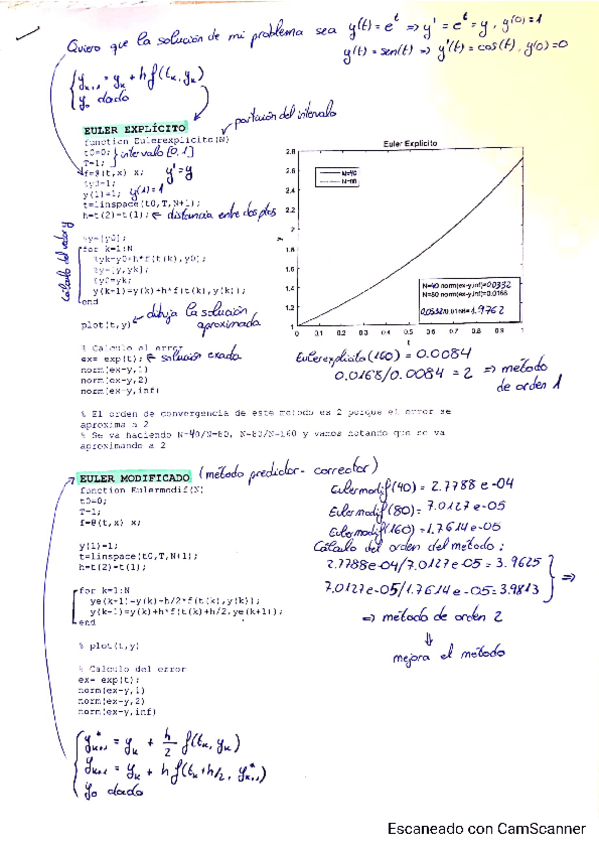 Quiero que la solución de mi problema sea y(t) = e^t => y' = e^t = y, y(0) = 1
y(t) = sen(t) => y'(t) = cos(t), y(0) = 0
y_{k+1} = y_k + h f(t_k, y_k)
y_0 dado
EULER EXPLÍCITO
partición del intervalo
function Eulerexplicito(N)
t0=0; } intervalo [0,1]
T=1;
f=@(t,x) x; y' = y
%y0=1;
y(1)=1; y(1)=1
t=linspace(t0,T,N+1);
h=t(2)-t(1); distancia entre dos ptos
%y=[y0];
cálculo del vector y
for k=1:N
%yk=y0+h*f(t(k),y0);
%y=[y,yk];
%y0=yk;
y(k+1)=y(k)+h*f(t(k),y(k));
end
plot(t,y) dibuja la solución
aproximada
% Calculo el error
ex= exp(t); solución exacta
norm(ex-y,1)
norm(ex-y,2)
norm(ex-y,inf)
Euler Explícito
2.8
2.6
2.4
2.2
2
1.8
1.6
1.4
1.2
1
0 0.1 0.2 0.3 0.4 0.5 0.6 0.7 0.8 0.9 1
t
y
N=40
N=80
N=40 norm(ex-y,inf)=0.0332
N=80 norm(ex-y,inf)=0.0168
0.0332/0.0168=1.9762
Eulerexplicito(160) = 0.0084
0.0168/0.0084 = 2 => método
de orden 1
% El orden de convergencia de este metodo es 2 porque el error se
aproxima a 2
% Se va haciendo N=40/N=80, N=80/N=160 y vamos notando que se va
aproximando a 2
EULER MODIFICADO (método predictor - corrector)
function Eulermodif(N)
t0=0;
T=1;
f=@(t,x) x;
y(1)=1;
t=linspace(t0,T,N+1);
h=t(2)-t(1);
for k=1:N
ye(k+1)=y(k)+h/2*f(t(k),y(k));
y(k+1)=y(k)+h*f(t(k)+h/2,ye(k+1));
end
% plot(t,y)
% Calculo del error
ex= exp(t);
norm(ex-y,1)
norm(ex-y,2)
norm(ex-y,inf)
Eulermodif(40) = 2.7788 e-04
Eulermodif(80) = 7.0127 e-05
Eulermodif(160) = 1.7614 e-05
Cálculo del orden del método:
2.7788e-04/7.0127e-05 = 3.9625
7.0127e-05/1.7614e-05 = 3.9813 =>
=> método de orden 2
mejora el método
y*_{k+1} = y_k + h/2 f(t_k, y_k)
y_{k+1} = y_k + h f(t_k + h/2, y*_{k+1})
y_0 dado
Escaneado con CamScanner